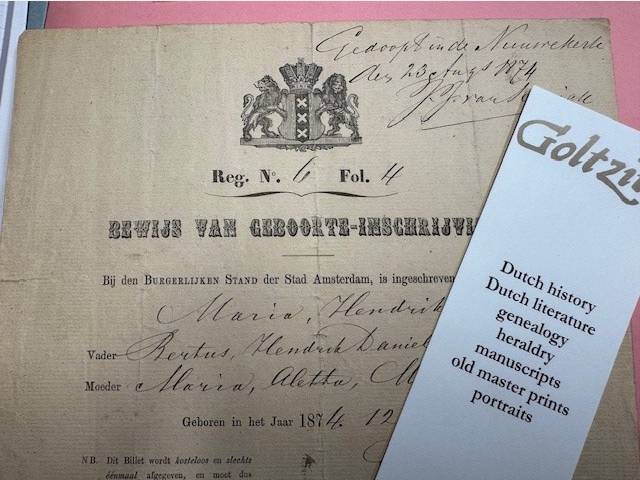 Gedoopt in de Nieuwekerk
den 23 Augs 1874
J. J. van
Reg. No. 6 Fol. 4
BEWIJS VAN GEBOORTE-INSCHRIJVI
Bij den BURGERLIJKEN STAND der Stad Amsterdam, is ingeschreve
Maria, Hendrik
Vader Bertus, Hendrik Daniel
Moeder Maria, Aletta, M
Geboren in het Jaar 1874. 12
NB. Dit Billet wordt kosteloos en slechts
éénmaal afgegeven, en moet dus
Goltziu
Dutch history
Dutch literature
genealogy
heraldry
manuscripts
old master prints
portraits